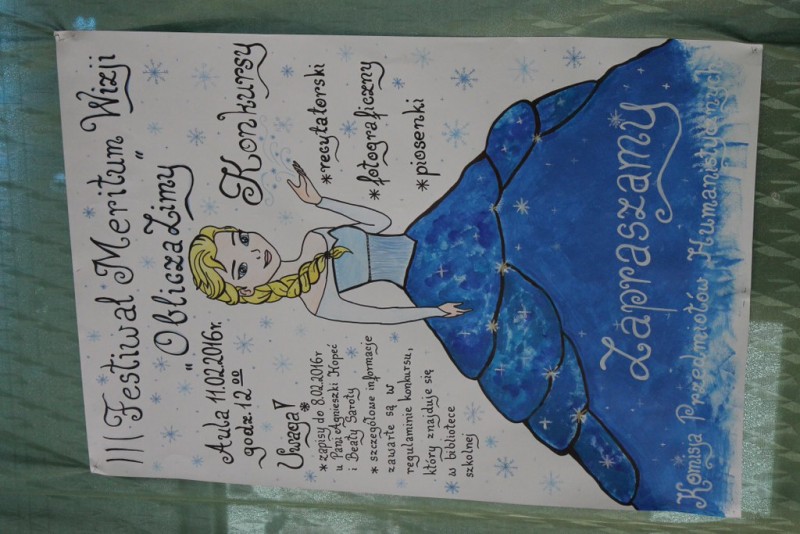 III Festiwal Meritum Wizji
"Oblicza Zimy"
Aula 11.02.2016r.
godz. 12 00
Konkursy
*recytatorski
*fotograficzny
*piosenki
Uwaga!
*zapisy do 8.02.2016r
u Pani Agnieszki Kopeć
i Beaty Saroty
*szczegółowe informacje
zawarte są w
regulaminie konkursu,
który znajduje się
w bibliotece
szkolnej
Zapraszamy
Komisja Przedmiotów Humanistycznych